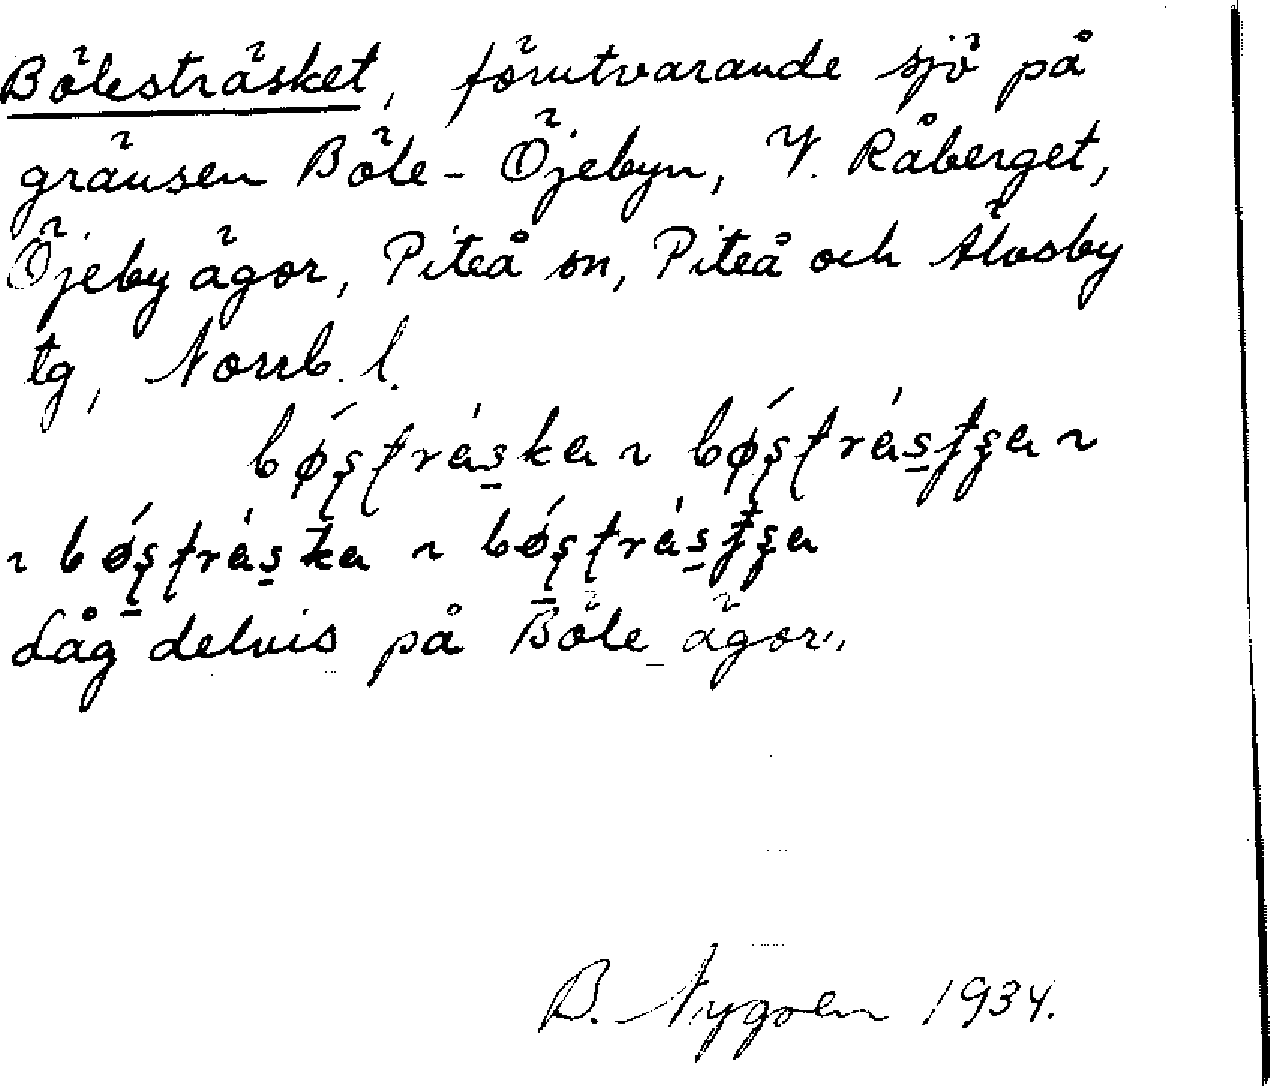 Bölesträsket, förutvarande sjö på
gränsen Böle - Öjebyn, V. Råberget,
Öjeby ägor, Piteå sn, Piteå och Älvsby
tg, Norrb. l.
~
~ ~
Låg delvis på Böle ägor.
B. Nygren 1934.